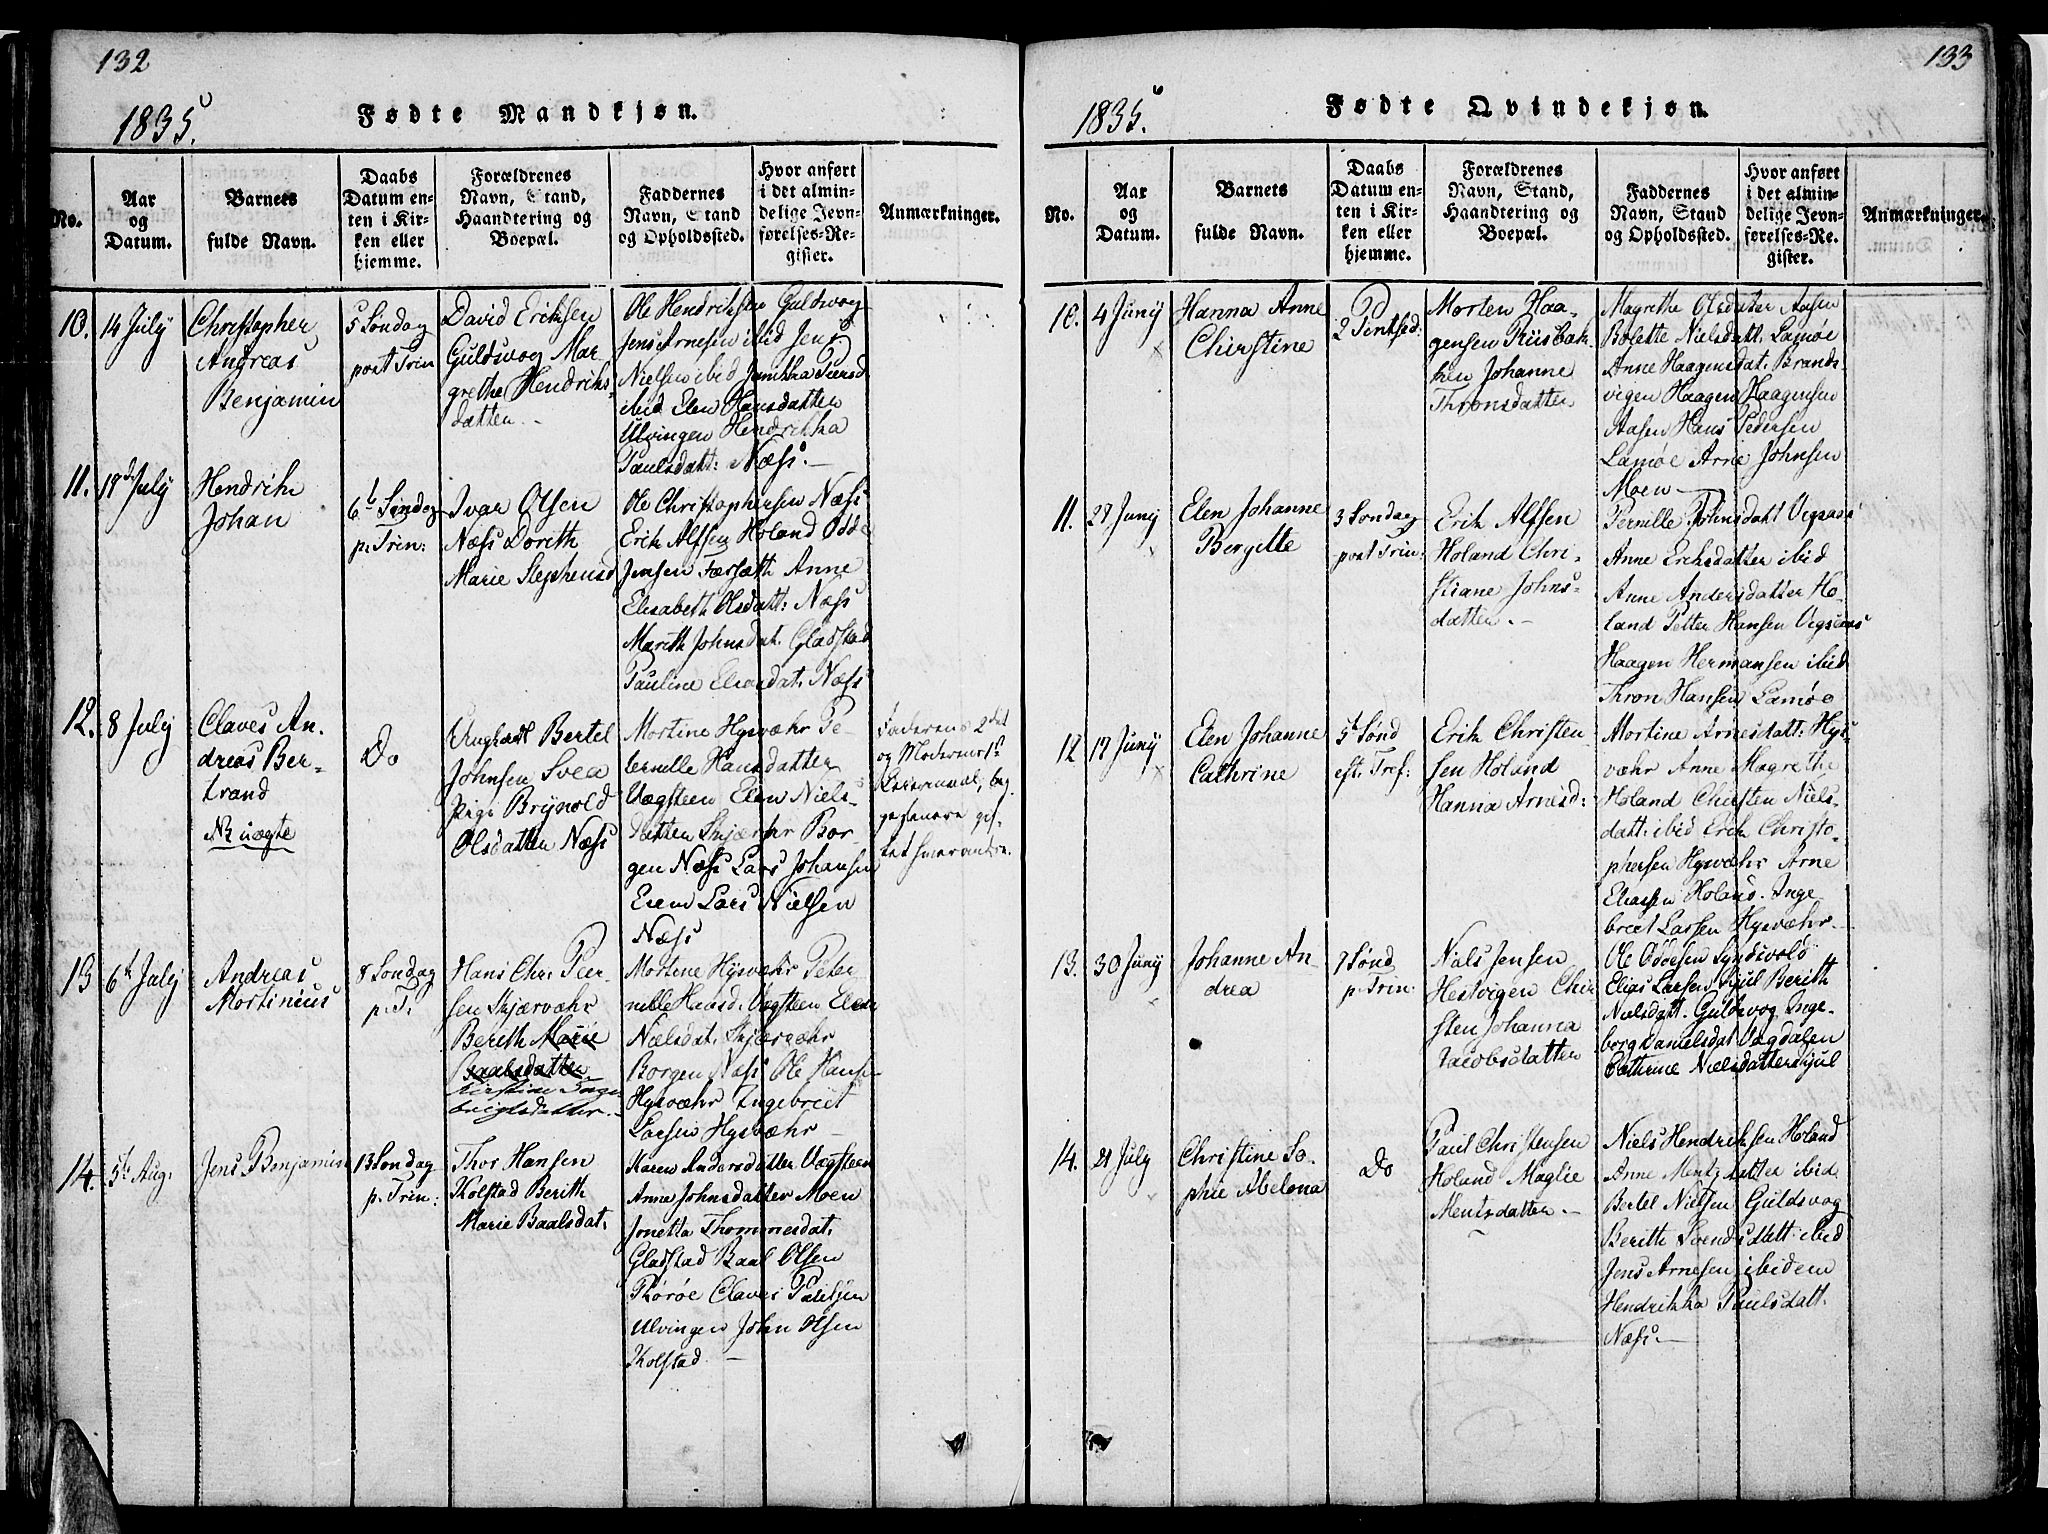 132
1835.
Fødte Mandkjøn.
No.
Aar
og
Datum.
Barnets
fulde Navn.
Daabs
Datum en-
ten i Kir-
ken eller
hjemme.
Forældrenes
Navn, Stand,
Haandtering og
Boepæl.
Faddernes
Navn, Stand
og Opholdssted.
Hvor anført
i det almin-
delige Jevn-
førelses-Re-
gister.
Anmærkninger.
10.
14 July
Christopher
Andreas
Benjamin
5 Søndag
post Trin
David Eriksen
Guldsvog Mar-
grethe Hendriks-
datter.
Ole Hendriksen Guldsvog
Jens Arnesen ibid Jens
Nielsen ibid Peersd
ibid Elen Hansdatter
Ulvingen Hendrikka
Paulsdatt: Næss.
11.
July
Hendrik
Johan
6t Søndag
p. Trin:
Ivar Olsen
Næss Dorith
Marie Stephensd
Ole Christophersen Næss
Erik Alfsen Holand Odde
Jensen Forsæth Anne
Elisabeth Olsdatt: Næss
Marith Johnsdat. Gladstad
Pauline dat. Næss
12.
8 July
Claves An-
dreas Ber-
trand
NB uægte
Do
Ungkarl Bertel
Johnsen Svea
Pige Brynold
Olsdatter Næss
Mortine Hysvæhr Pe-
ternille Hansdatter
Vægsteen Elen Niels-
datter Skjærvær Bor-
gen Næss Lars Johansen
Lars Nielsen
Næss
Faderens 2det
og Moderens 1ste
Leiermaal, beg-
ge
13
6te July
Andreas
Mortinius
8 Søndag
p. T.
Hans Chr. Peer-
sen Skjærvæhr
Berith Marie
Baalsdatter
Kirstine Inge-
brigtsdatter.
Mortene Hysvæhr Peter
nille Hansd. Vægsteen Elen
Nælsdat. Skjærvæhr
Borgen Næss Ole Hanse
Hysvæhr Ingebreit
Larsen Hysvæhr
14.
5te Aug.
Jens Benjamin
13 Søndag
p. Trin:
Thor Hansen
Kolstad Berith
Marie Baalsdat.
Karen Andersdatter Vægsteen
Anne Johnsdatter Moen
Jonetta Thommesdat.
Gladstad Baal Olsen
Thorøe Claves Paulsen
Ulvingen John Olsen
Kolstad.
133
1835.
Fødte Qvindekjøn.
No.
Aar
og
Datum.
Barnets
fulde Navn.
Daabs
Datum en-
ten i Kir-
ken eller
hjemme.
Forældrenes
Navn, Stand,
Haandtering og
Boepæl.
Faddernes
Navn, Stand
og Opholdssted.
Hvor anført
i det almin-
delige Jevn-
førelses-Re-
gister.
Anmærkninger.
10.
4 Juny
Hanna Anne
Chirstine
2 Pintsed:
Morten Haa-
gensen Riisbak-
ken Johanne
Thronsdatter
Magrethe Olsdatter Aasen
Bolette Nielsdatt. Lamøe
Anne Haagensdat. Brands-
vigen Haagen Haagensen
Aasen Hans Pedersen
Lamøe Arne Johnsen
Moen
11.
27 Juny
Elen Johanne
Bergitte
3 Søndag
post Trin:
Erik Alfsen
Holand Chri-
stiane Johns-
datter.
Pernille Johnsdatt Vigsaas
Anne Eriksdatter ibid
Anne Andersdatter Ho-
land Petter Hansen Vigsaas
Haagen Hermansen ibid
Thron Hansen Lamøe
12
17 Juny
Elen Johanne
Cathrine
5t Sønd
eft. Tref:
Erik Christen-
sen Holand
Hanna Arnesd:
Mortine Arnesdatt: Hys-
væhr Anne Magrethe
Holand Chirsten Niels-
datt: ibid Erik Christo-
phersen Hysvæhr Arne
Eliassen Holand. Inge
breit Larsen Hysvæhr.
13.
30 Juny
Johanne An-
drea
7 Sønd
p. Trin:
Niels Jensen
Hestvigen Chir
sten Johanna
Jacobsdatter
Ole Oddesen
Elias Larsen Skjul Berith
Nielsdatt. Guldsvog Inge-
borg Danielsdat Vægdalen
Cathrine Nielsdatter Skjul
14.
21 July
Christine So-
phie Abelona
Do
Paul Christensen
Holand Maglie
Mentsdatter
Niels Hendriksen Holand
Anne Mentzdatter ibid
Bertel Nielsen Guldsvog
Berith Svendsdatt: ibid
Jens Arnesen ibidem
Hendrikka Paulsdatt.
Næss.